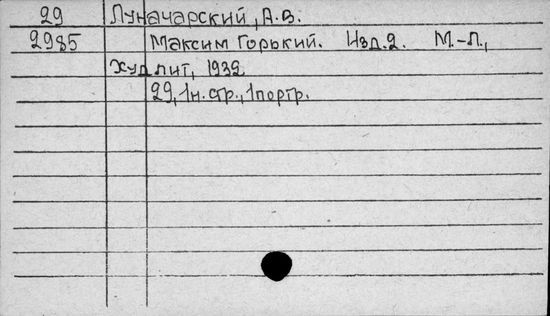 29 Луначарский, А.В.
2985 Максим Горький. Изд.2. М.-Л.,
Худлит, 1932
29, 1н.стр., 1портр.